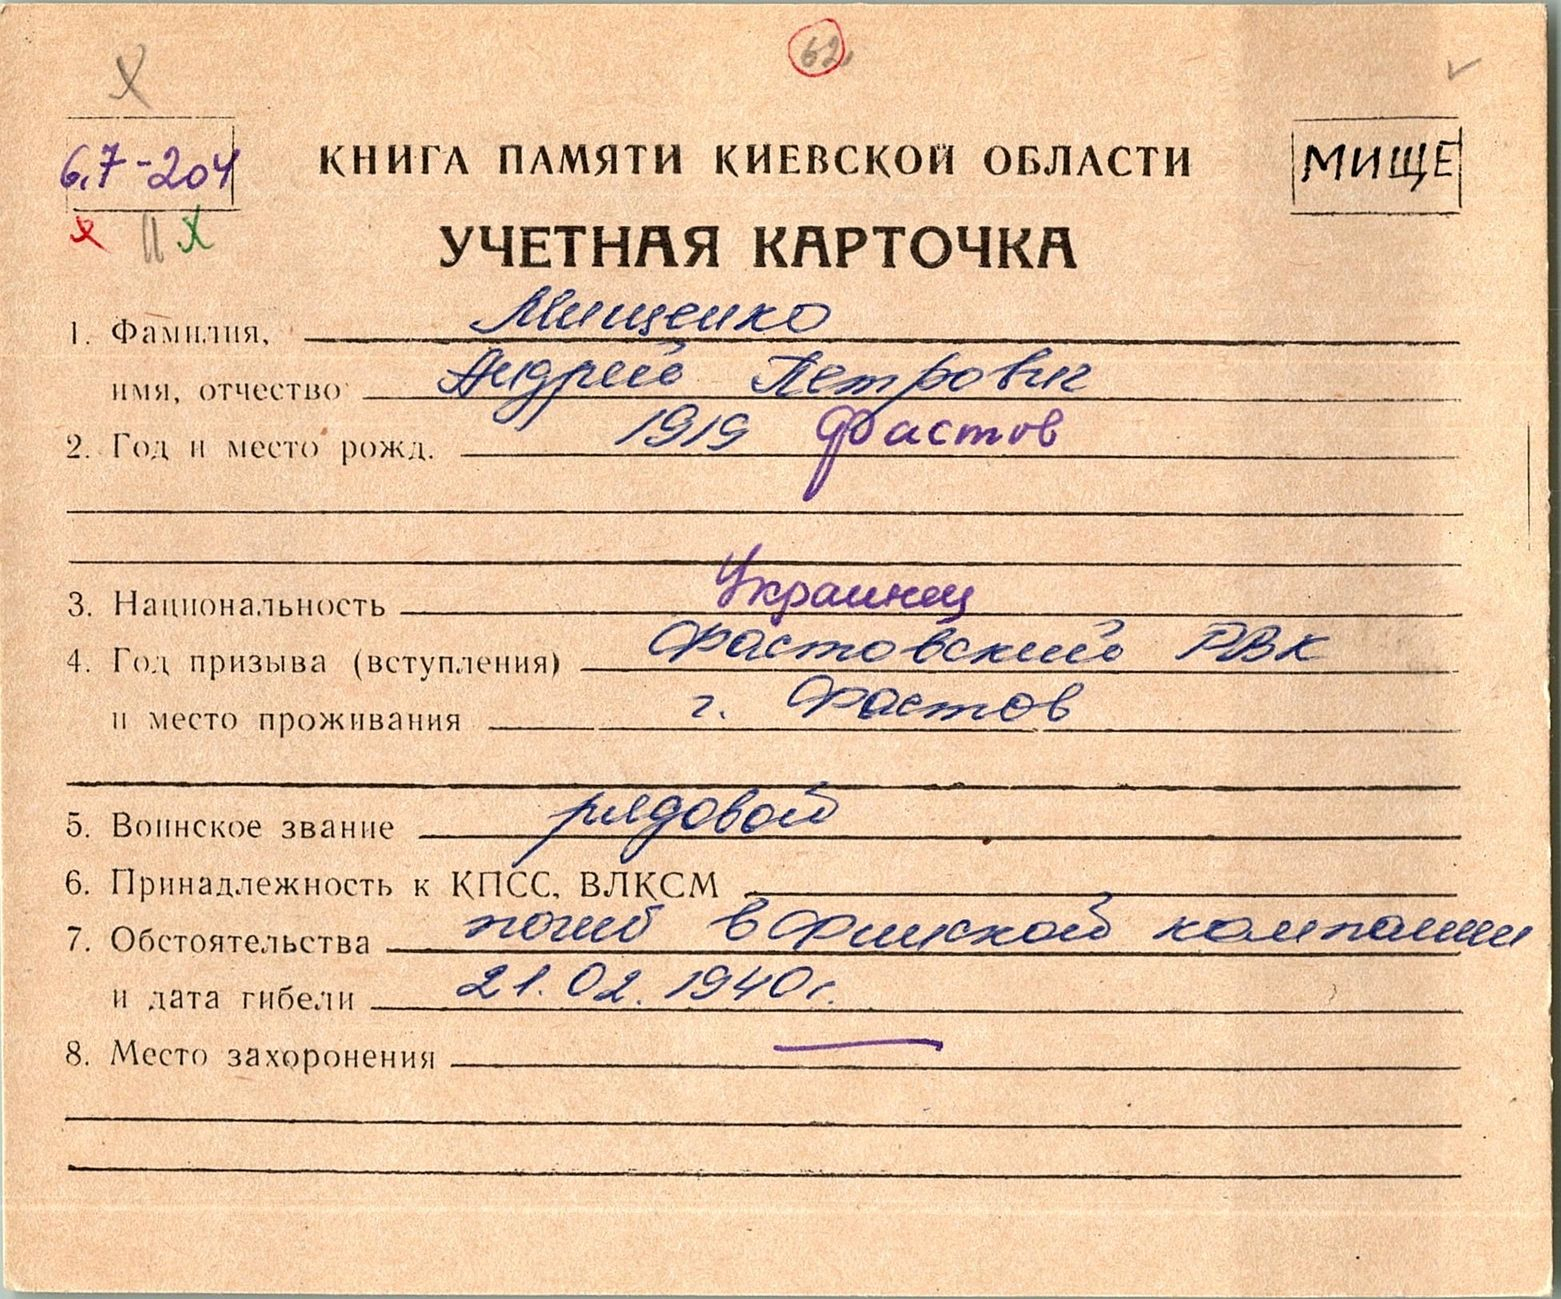 Х
62
6,7-204
КНИГА ПАМЯТИ КИЕВСКОЙ ОБЛАСТИ
МИЩЕ
х II х
УЧЕТНАЯ КАРТОЧКА
1. Фамилия, Мищенко
имя, отчество Андрей Петрович
2. Год и место рожд. 1919 Фастов
3. Национальность Украинец
4. Год призыва (вступления) Фастовский РВК
и место проживания г. Фастов
5. Воинское звание рядовой
6. Принадлежность к КПСС, ВЛКСМ
7. Обстоятельства погиб в Финской компании
и дата гибели 21.02.1940г.
8. Место захоронения —